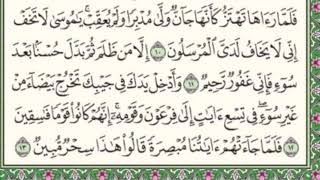 فَلَمَّا رَءَاهَا تَهْتَزُّ كَأَنَّهَا جَآنٌّ وَلَّىٰ مُدْبِرًا وَلَمْ يُعَقِّبْ يَـٰمُوسَىٰ لَا تَخَفْ
إِنِّى لَا يَخَافُ لَدَىَّ ٱلْمُرْسَلُونَ ١٠ إِلَّا مَن ظَلَمَ ثُمَّ بَدَّلَ حُسْنًۢا بَعْدَ
سُوٓءٍ فَإِنِّى غَفُورٌ رَّحِيمٌ ١١ وَأَدْخِلْ يَدَكَ فِى جَيْبِكَ تَخْرُجْ بَيْضَآءَ مِنْ
غَيْرِ سُوٓءٍ فِى تِسْعِ ءَايَـٰتٍ إِلَىٰ فِرْعَوْنَ وَقَوْمِهِۦٓ إِنَّهُمْ كَانُوا۟ قَوْمًا فَـٰسِقِينَ
١٢ فَلَمَّا جَآءَتْهُمْ ءَايَـٰتُنَا مُبْصِرَةً قَالُوا۟ هَـٰذَا سِحْرٌ مُّبِينٌ ١٣